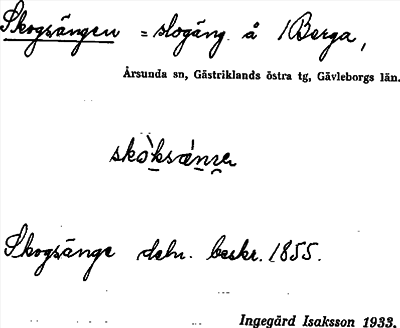 Skogsängen = slogäng å 1 Berga,
Årsunda sn, Gästriklands östra tg, Gävleborgs län.
Skogsänge debr. beskr. 1855.
Ingegärd Isaksson 1933.